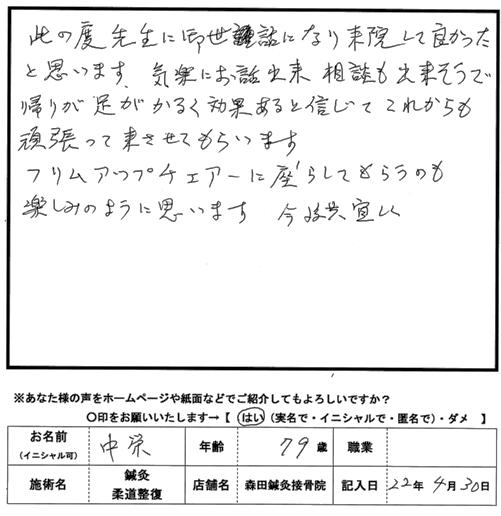 此の度先生に御世話になり来院して良かった
と思います、気楽にお話出来 相談も出来そうで
帰りが足がかるく効果あると信じてこれからも
頑張って来させてもらいます
フリムアップチェアーに座らしてもらうのも
楽しみのように思います 今後共宜しく
※あなた様の声をホームページや紙面などでご紹介してもよろしいですか？
〇印をお願いいたします→【 はい (実名で・イニシャルで・匿名で)・ダメ 】
お名前 (イニシャル可) 中栄 年齢 79歳 職業
施術名 鍼灸 柔道整復 店舗名 森田鍼灸接骨院 記入日 22年4月30日